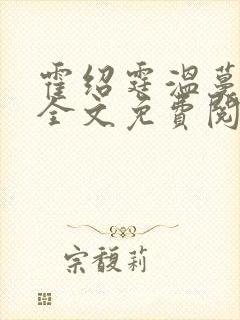 霍绍霆温蔓
全文免费阅
宗馥莉